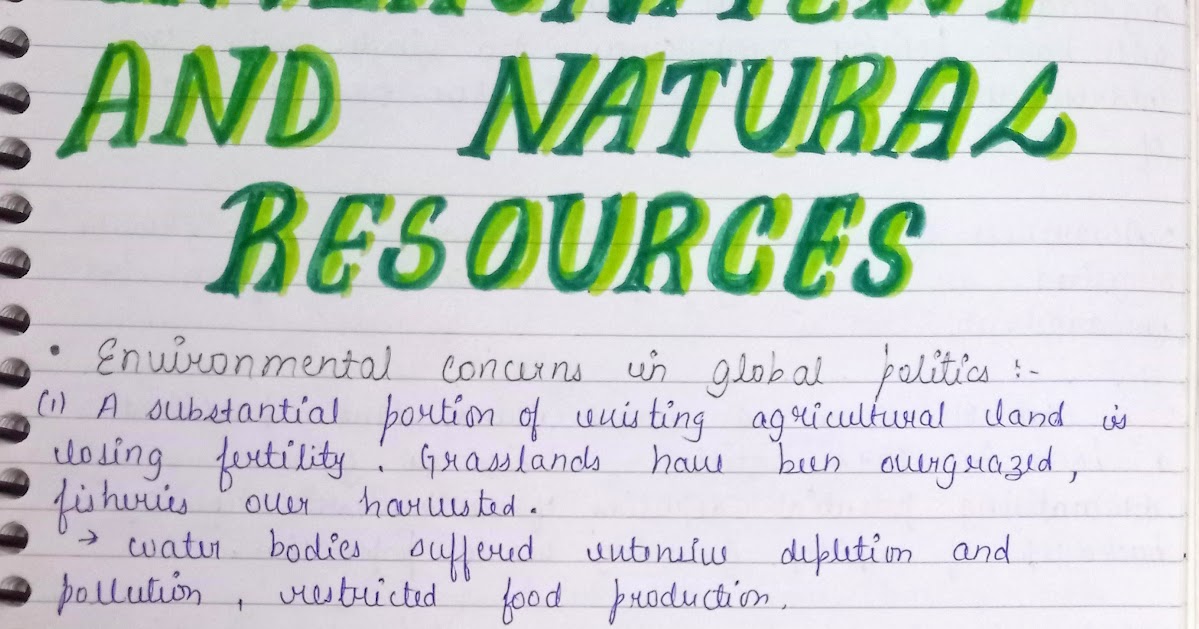 AND NATURAL
RESOURCES
• Environmental concerns in global politics :-
(1) A substantial portion of existing agricultural land is
losing fertility. Grasslands have been overgrazed,
fisheries over harvested.
→ water bodies suffered extensive depletion and
pollution, restricted food production.